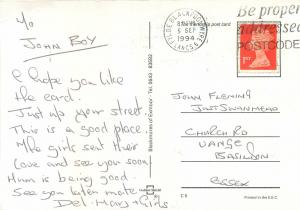 Yo
JOHN BOY
I hope you like
the card.
Just up your street
This is a good place.
The girls sent their
love and see you soon
Mum is being good.
See you later mate.
Del. Mary + Girls
5 SEP
1994
LANCS
Be proper
addressed
POSTCODE
1ST
JOHN FLEMING
JUST SWANMEAD
CHURCH RD
VANGE
BASILDON
ESSEX
C 5
Printed in the E.E.C.